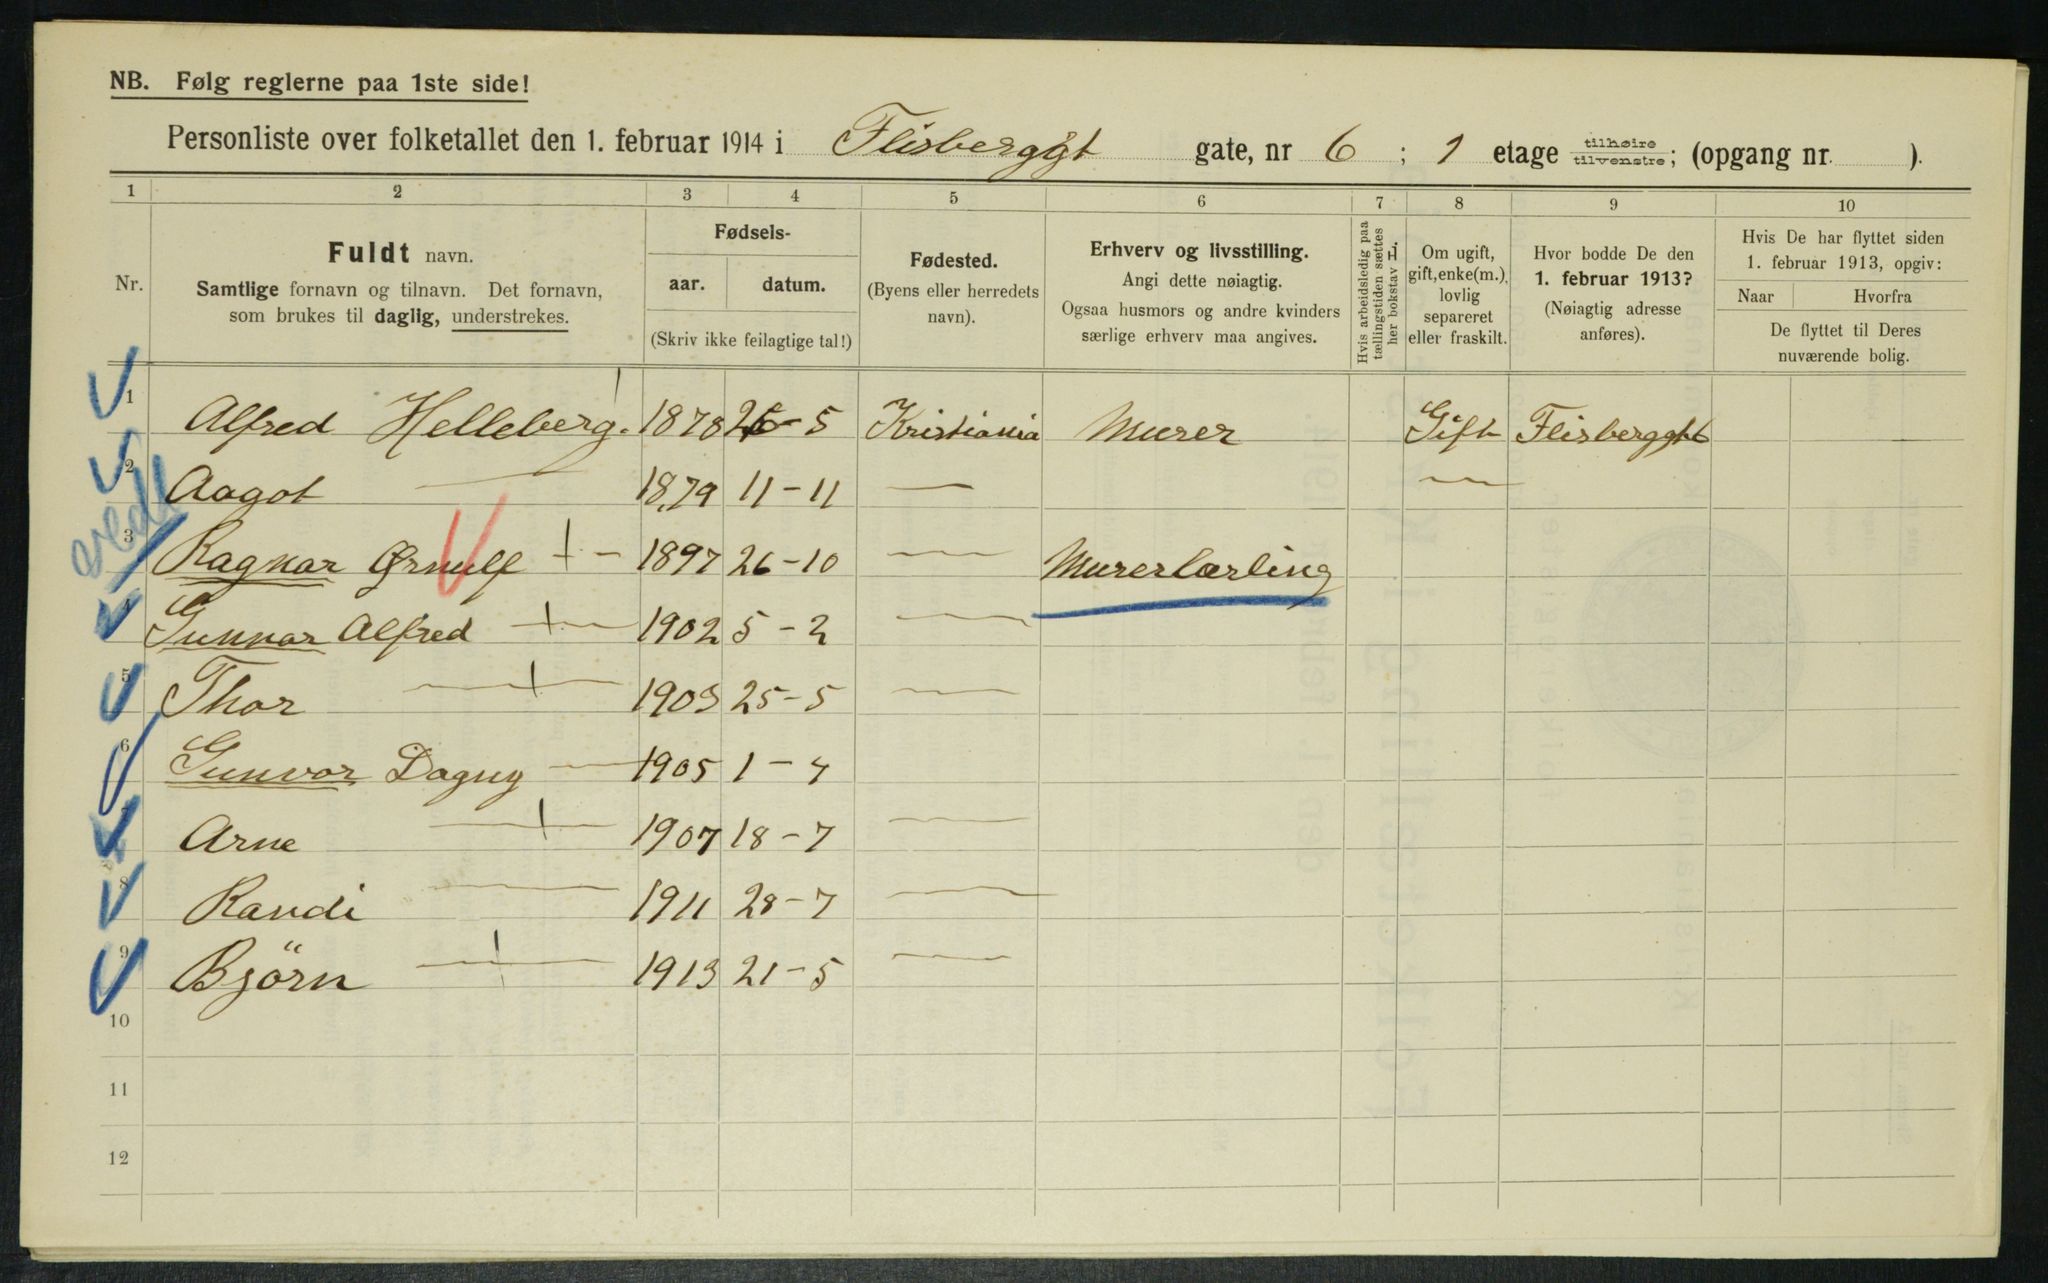 NB. Følg reglerne paa 1ste side!
Personliste over folketallet den 1. februar 1914 i Flisberggt gate, nr 6 ; 1 etage tilhøire tilvenstre ; (opgang nr. ).
1 2 3 4 5 6 7 8 9 10
Nr.
Fuldt navn.
Samtlige fornavn og tilnavn. Det fornavn,
som brukes til daglig, understrekes.
Fødsels-
aar. datum.
(Skriv ikke feilagtige tal!)
Fødested.
(Byens eller herredets
navn).
Erhverv og livsstilling.
Angi dette nøiagtig.
Ogsaa husmors og andre kvinders
særlige erhverv maa angives.
Hvis arbeidsledig paa
tællingstiden sættes
her bokstav L.
Om ugift,
gift, enke(m.),
lovlig
separeret
eller fraskilt.
Hvor bodde De den
1. februar 1913?
(Nøiagtig adresse
anføres).
Hvis De har flyttet siden
1. februar 1913, opgiv:
Naar Hvorfra
De flyttet til Deres
nuværende bolig.
1 Alfred Helleberg. 1878 26-5 Kristiania Murer Gift Flisberggt 6
2 Aagot — 1879 11-11 — —
3 Ragnar Ørnulf — 1897 26-10 — Murerlærling
4 Gunnar Alfred — 1902 5-2 —
5 Thor — 1903 25-5 —
6 Gunvor Dagny — 1905 1-4
7 Arne — 1907 18-7 —
8 Randi — 1911 28-7 —
9 Björn — 1913 21-5 —
10
11
12